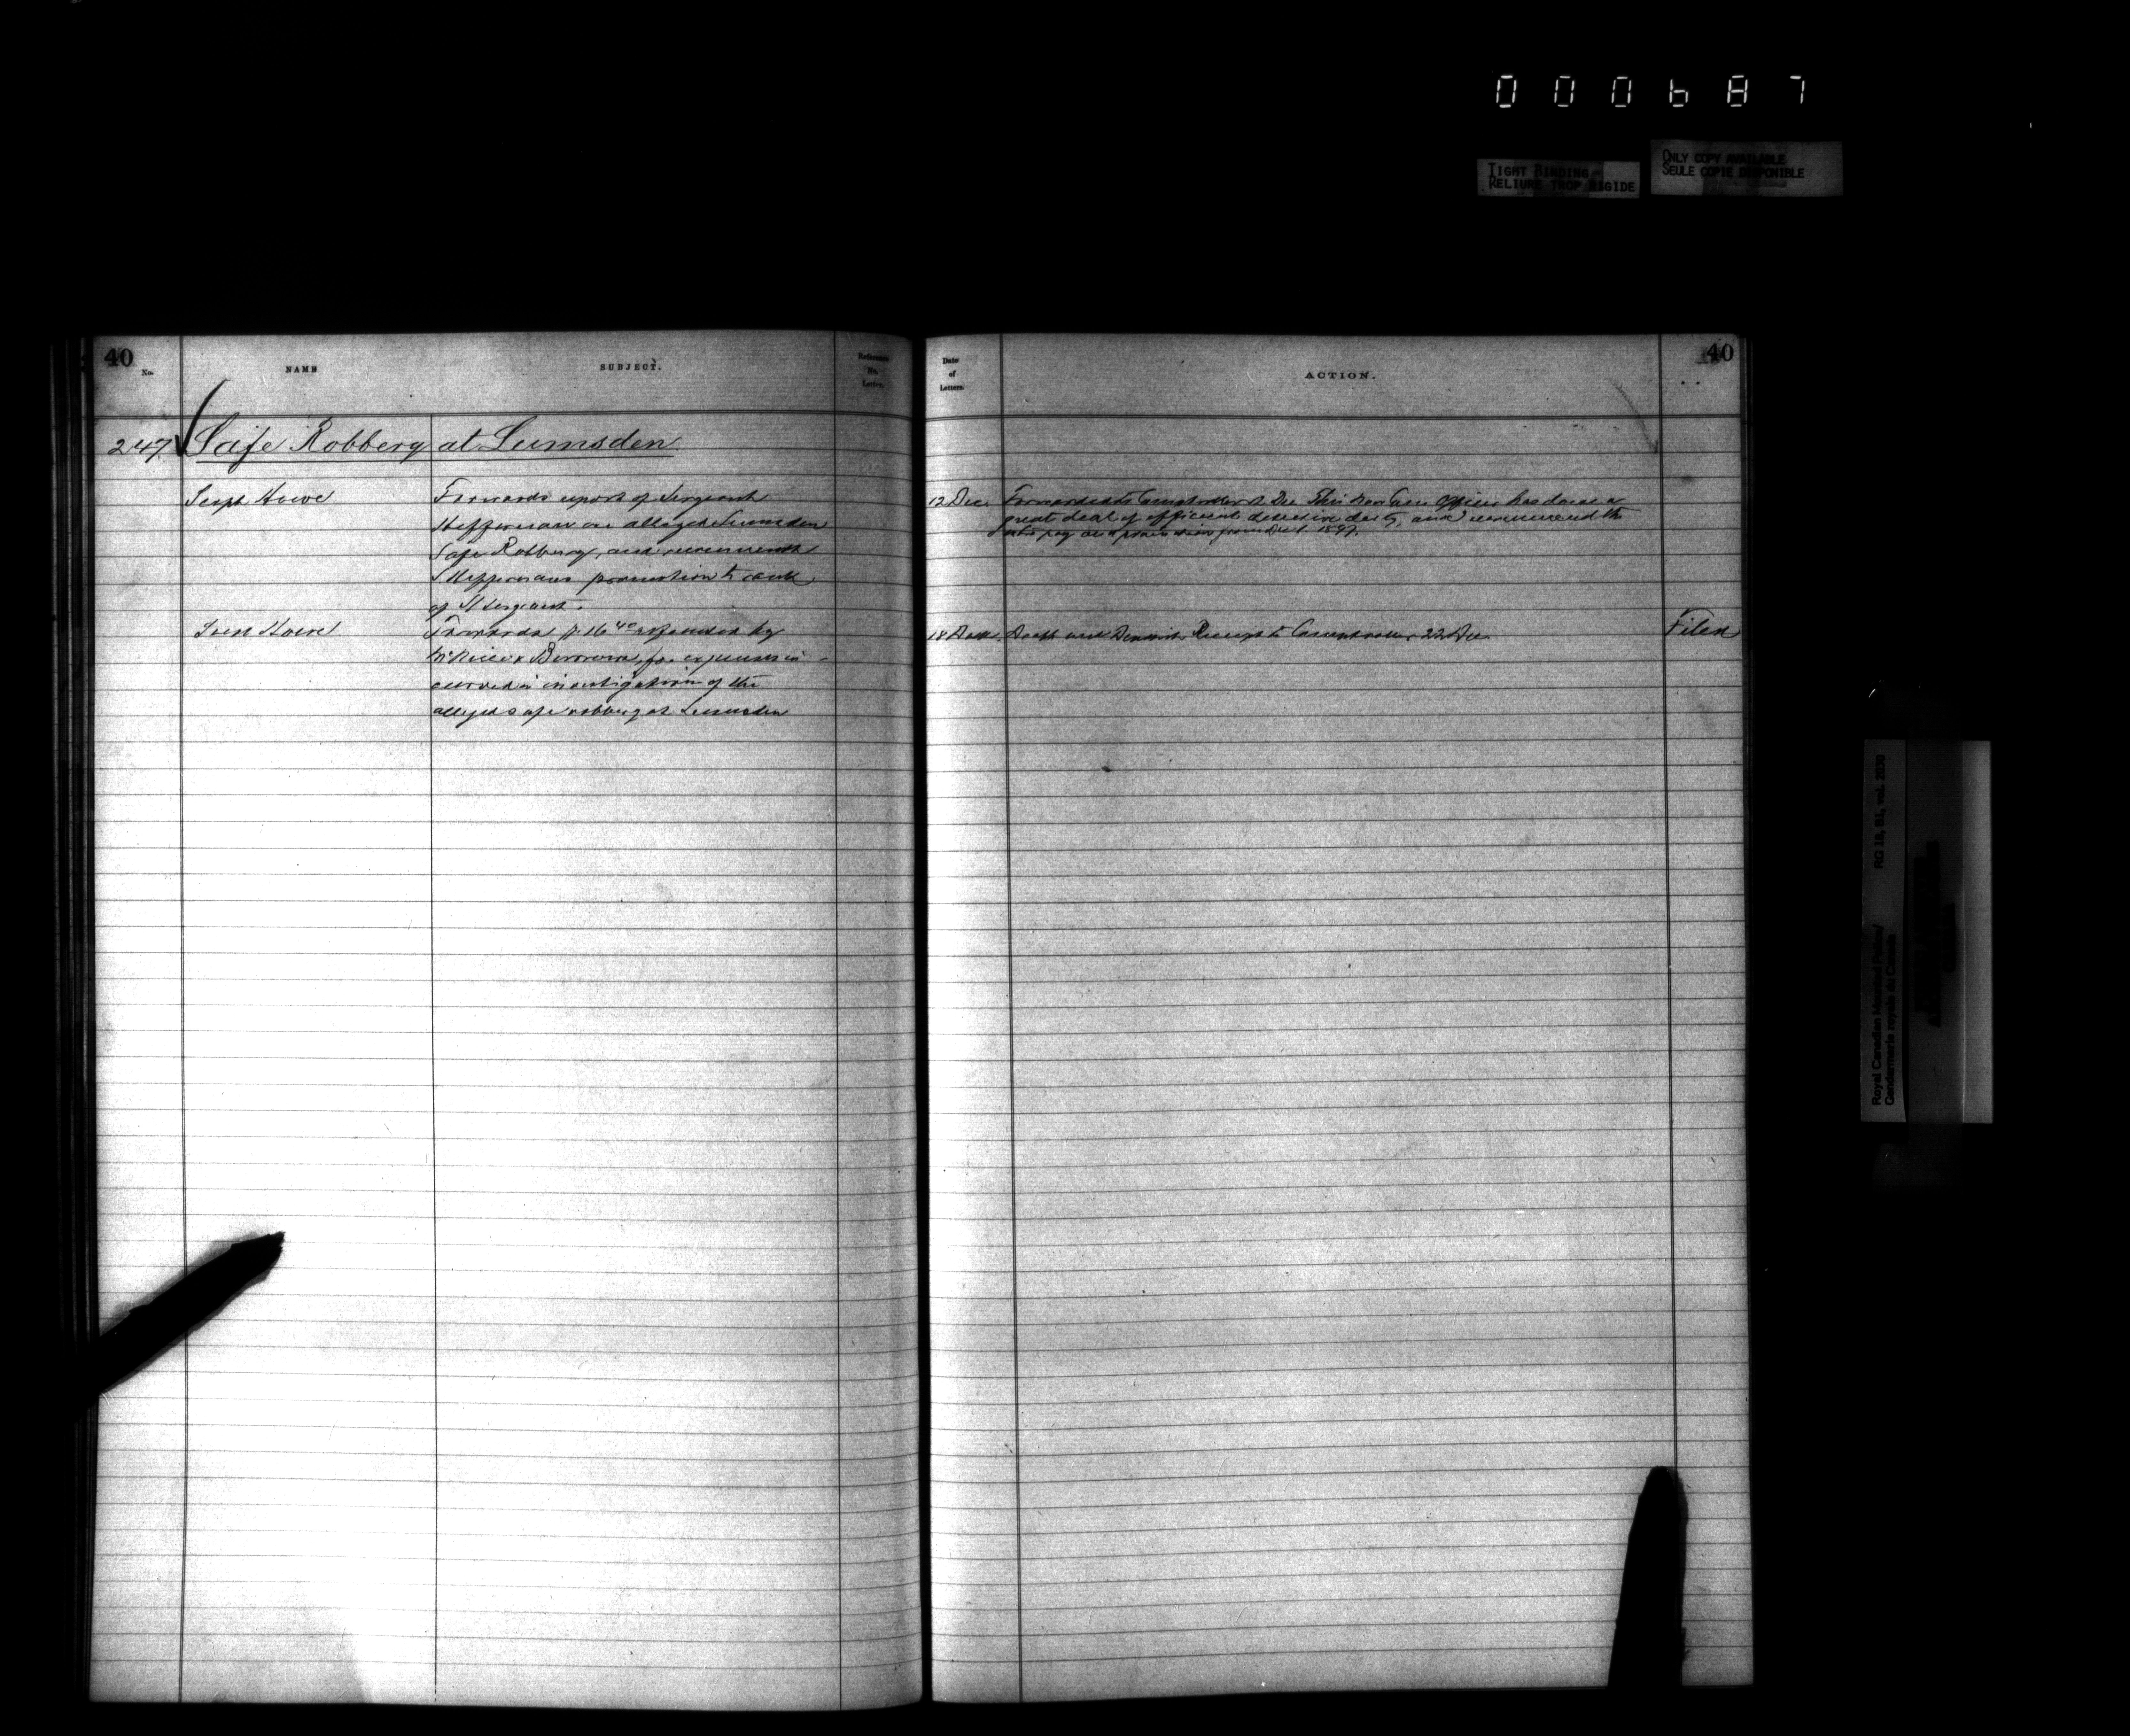 000687
TIGHT BINDING
RELIURE TROP RIGIDE
ONLY COPY AVAILABLE
SEULE COPIE DISPONIBLE
40
No.
NAME
SUBJECT.
Reference
No.
Letter.
Date
of
Letters.
ACTION.
40
247 Safe Robbery at Lumsden
Supt Howe
Forwards report of Sergeant
Heffernan on alleged Lumsden
Safe Robbery, and recommends
S Heffernans promotion to rank
of S Sergeant.
12 Dec.
Forwarded to Comptroller Dec This Non Com. Officer has done a
great deal of efficient detective duty, and recommend the
pay and promotion from Dec 1. 1897.
Supt Howe
Forwards $16 40 refunded by
McNeice & Burrows, for expenses in-
curred in investigation of the
alleged safe robbery at Lumsden
18 Dec.
Draft and Deposit Receipt to Comptroller 22 Dec.
Filed
Royal Canadian Mounted Police/
Gendarmerie royale du Canada
RG 18, B1, vol. 2038